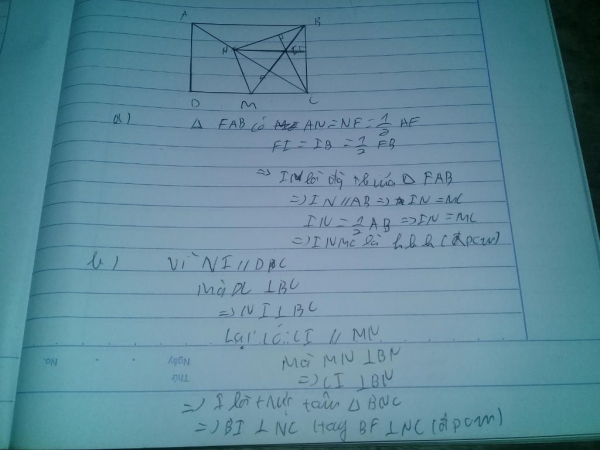 A B
N I
F
D M C
a) Δ FAB có AN = NF = 1/2 AF
FI = IB = 1/2 FB
=> IN là đg tb của Δ FAB
=> IN // AB => IN = MC
IN = 1/2 AB => IN = MC
=> INMC là hbh (đpcm)
b) Vì NI // DC
mà DC ⊥ BC
=> NI ⊥ BC
Lại có: CI // MN
Mà MN ⊥ BN
=> CI ⊥ BN
=> I là trực tâm Δ BNC
=> BI ⊥ NC Hay BF ⊥ NC (đpcm)
No.
Ngày
Thứ